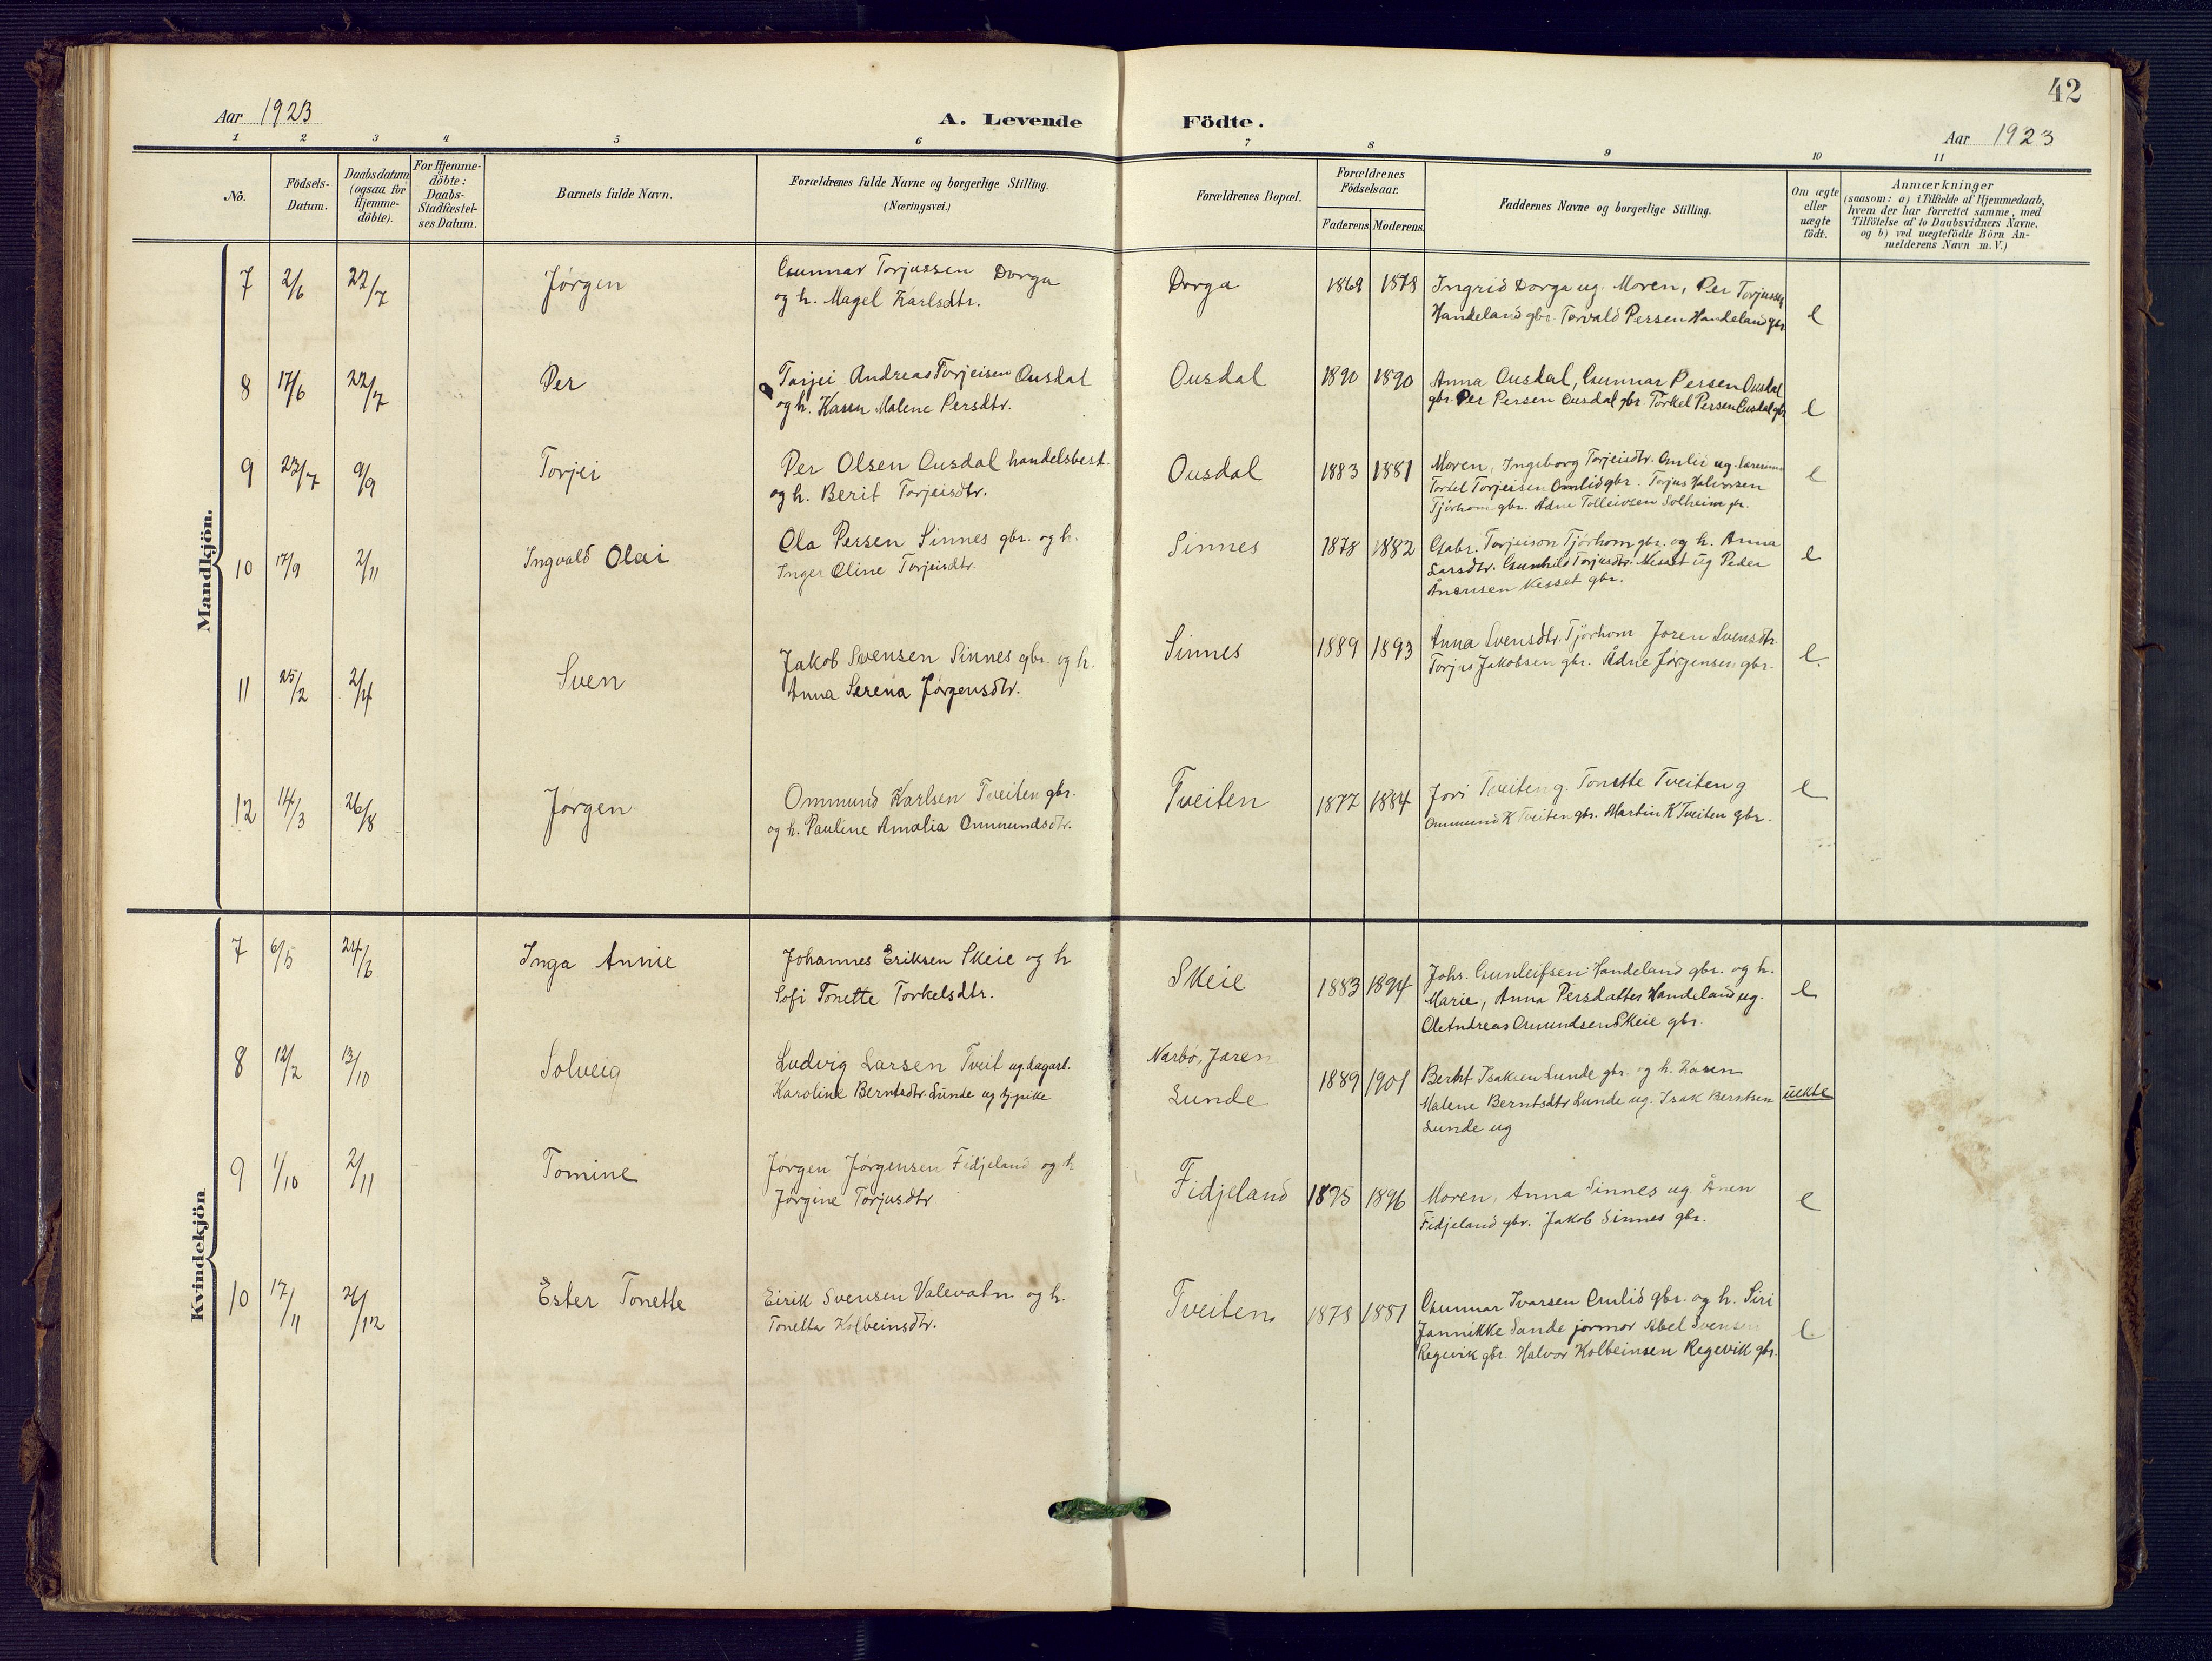 42
Aar 1923
A. Levende Födte.
Aar 1923
1 2 3 4 5 6 7 8 9 10 11
No.
Födsels-
Datum.
Daabsdatum
(ogsaa for
Hjemme-
döbte).
For Hjemme-
döbte:
Daabs-
Stadfæstel-
ses Datum.
Barnets fulde Navn.
Forældrenes fulde Navne og borgerlige Stilling.
(Næringsvei.)
Forældrenes Bopæl.
Forældrenes
Födselsaar.
Faderens
Moderens.
Faddernes Navne og borgerlige Stilling.
Om ægte
eller
uægte
født.
Anmærkninger
(saasom: a) i Tilfælde af Hjemmedaab,
hvem der har forrettet samme, med
Tilføielse af to Daabsvidners Navne,
og b) ved uægtefödte Börn An-
melderens Navn m. V.)
Mandkjön.
7 2/6 22/7 Jørgen
Gunnar Torjussen Dorga
og h. Magel Karlsdtr.
Dorga 1869 1878
Ingrid Dorga ug. Moren, Per Torjussen
Handeland gbr. Torvald Persen Handeland gbr.
e
8 17/6 22/7 Per
Tarjei Andreas Torjeisen Ousdal
og h. Karen Malene Persdtr.
Ousdal 1890 1890
Anna Ousdal, Gunnar Persen Ousdal
gbr. Per Persen Ousdal gbr. Torkel Persen Ousdal gbr
e
9 23/7 9/9 Torjei
Per Olsen Ousdal handelsbest.
og h. Berit Torjeisdtr.
Ousdal 1883 1881
Moren, Ingeborg Torjeisdtr. Omlid ug.
Torkel Torjeisen Omlid gbr. Torjus Halvorsen
Tjörhom gbr. Ådne Tolleivsen Solheim gbr.
e
10 17/9 2/11 Ingvald Olai
Ola Persen Sinnes gbr. og h.
Inger Oline Torjeisdtr.
Sinnes 1878 1882
Gabr. Torjeison Tjörhom gbr. og h. Anna
Larsdtr. Gunhild Torjusdtr. Nesset ug Peder
Ånensen Nesset gbr.
e
11 25/2 2/4 Sven
Jakob Svensen Sinnes gbr. og h.
Anna Serena Jørgensdtr.
Sinnes 1889 1893
Anna Svensdtr. Tjörhom Joren Svensdtr.
Torjus Jakobsen gbr. Ådne Jørgensen gbr.
e.
12 14/3 26/8 Jørgen
Ommund Karlsen Tveiten gbr.
og h. Pauline Amalia Ommundsdtr.
Tveiten 1877 1884
Jori Tveiten g. Tonette Tveiten g
Ommund K Tveiten gbr. Martin K Tveiten gbr.
e
Kvindekjön
7 6/5 24/6 Inga Annie
Johannes Eriksen Skeie og h
Sofi Tonette Torkelsdtr.
Skeie 1883 1894
Johs. Gunleifsen Handeland gbr. og h.
Marie, Anna Persdatter Handeland ug.
Ole Andreas Omundsen Skeie gbr.
e
8 12/2 13/10 Solveig
Ludvig Larsen Tveit ug. dagarb.
Karoline Berntsdtr. Lunde ug tjpike
Narbø, Jaren
Lunde
1889 1901
Bernt Isaksen Lunde gbr. og h. Karen
Malene Berntsdtr Lunde ug. Isak Berntsen
Lunde ug
uekte
9 1/10 2/11 Tomine
Jørgen Jørgensen Fidjeland og h
Jørgine Torjusdtr
Fidjeland 1895 1896
Moren, Anna Sinnes ug. Ånen
Fidjeland gbr. Jakob Sinnes gbr.
e
10 17/11 26/12 Ester Tonette
Eirik Svensen Valevatn og h.
Tonetta Kolbeinsdtr.
Tveiten 1878 1881
Gunnar Ivarsen Omlid gbr. og h. Siri
Jannikke Sande jormor Abel Svensen
Regevik gbr. Halvor Kolbeinsen Regevik gbr.
e